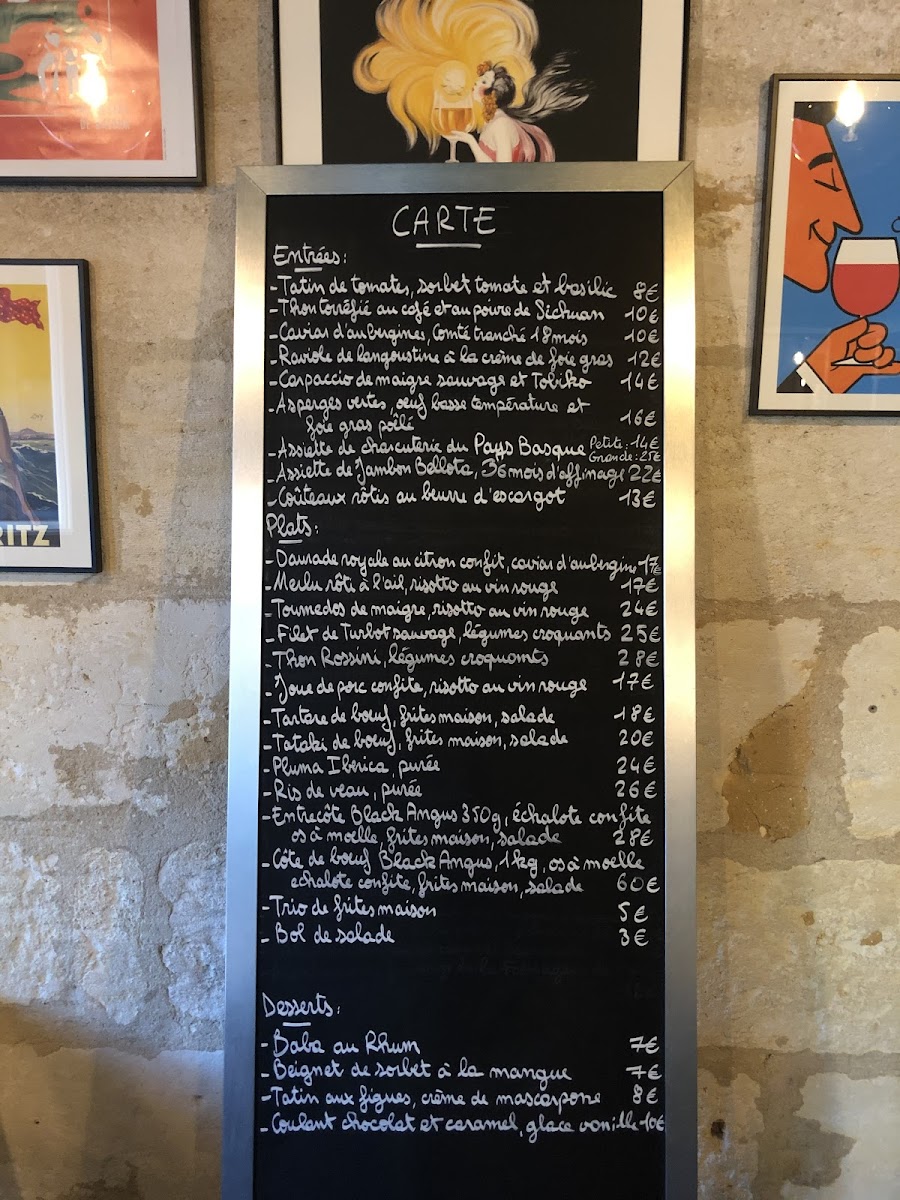 CARTE
Entrées:
- Tatin de tomates, sorbet tomate et basilic 8€
- Thon torréfié au café et au poivre de Sichuan 10€
- Caviar d'aubergines, Comté tranché 18 mois 10€
- Raviole de langoustine à la crème de foie gras 12€
- Carpaccio de maigre sauvage et Tobiko 14€
- Asperges vertes, oeuf basse température et
foie gras poêlé 16€
- Assiette de charcuterie du Pays Basque Petite: 14€
Grande: 25€
- Assiette de Jambon Bellota, 36 mois d'affinage 22€
- Coûteaux rôtis au beurre d'escargot 13€
Plats:
- Daurade royale au citron confit, caviar d'aubergine 17€
- Merlu rôti à l'ail, risotto au vin rouge 17€
- Tournedos de maigre, risotto au vin rouge 24€
- Filet de Turbot sauvage, légumes croquants 25€
- Thon Rossini, légumes croquants 28€
- Joue de porc confite, risotto au vin rouge 17€
- Tartare de boeuf, frites maison, salade 18€
- Tataki de boeuf, frites maison, salade 20€
- Pluma Iberica, purée 24€
- Ris de veau, purée 26€
- Entrecôte Black Angus 350g, échalote confite
os à moelle, frites maison, salade 28€
- Côte de boeuf Black Angus, 1kg, os à moelle
echalote confite, frites maison, salade 60€
- Trio de frites maison 5€
- Bol de salade 3€
Desserts:
- Baba au Rhum 7€
- Beignet de sorbet à la mangue 7€
- Tatin aux figues, crème de mascarpone 8€
- Coulant chocolat et caramel, glace vanille 10€
RITZ